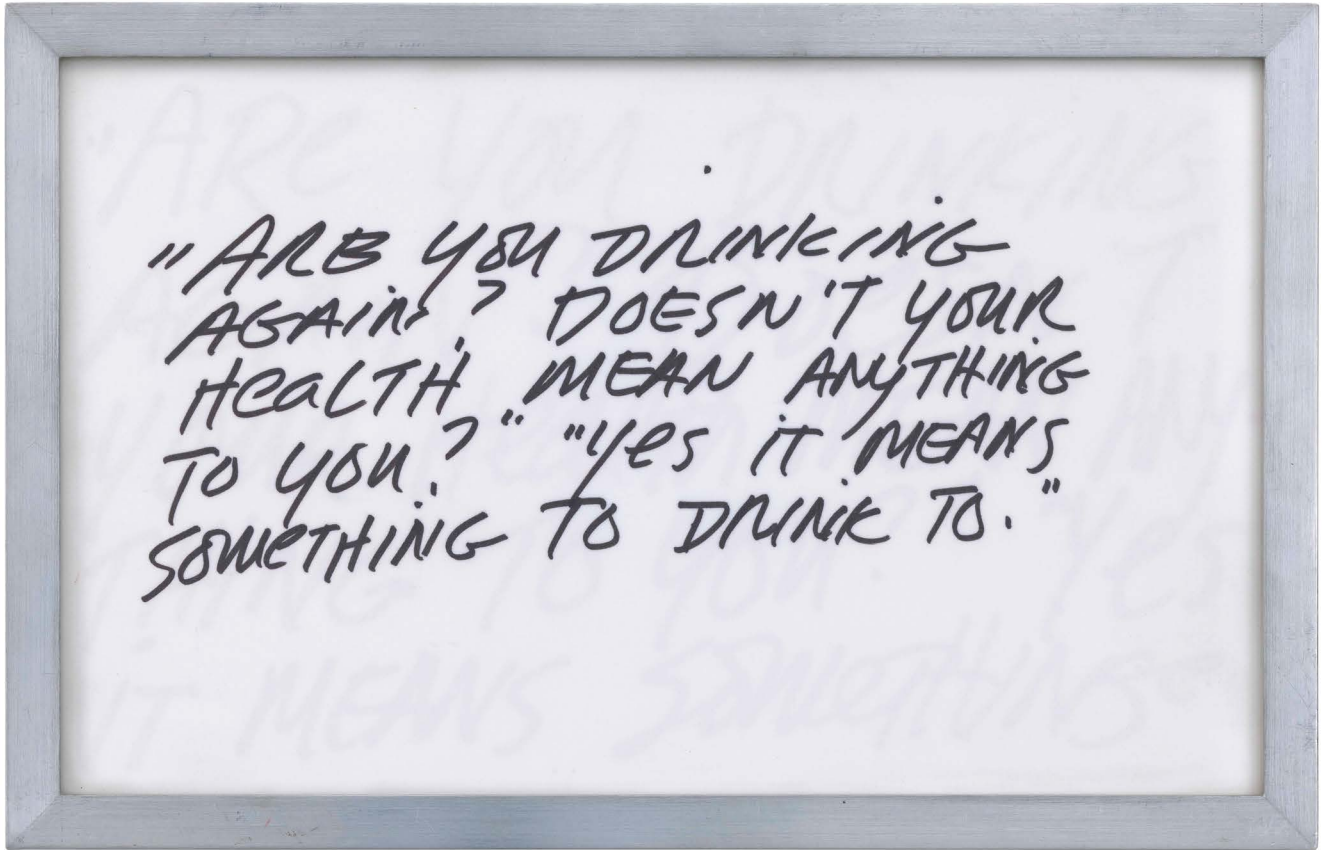 "ARE YOU DRINKING
AGAIN? DOESN'T YOUR
HEALTH MEAN ANYTHING
TO YOU?" "YES IT MEANS
SOMETHING TO DRINK TO."